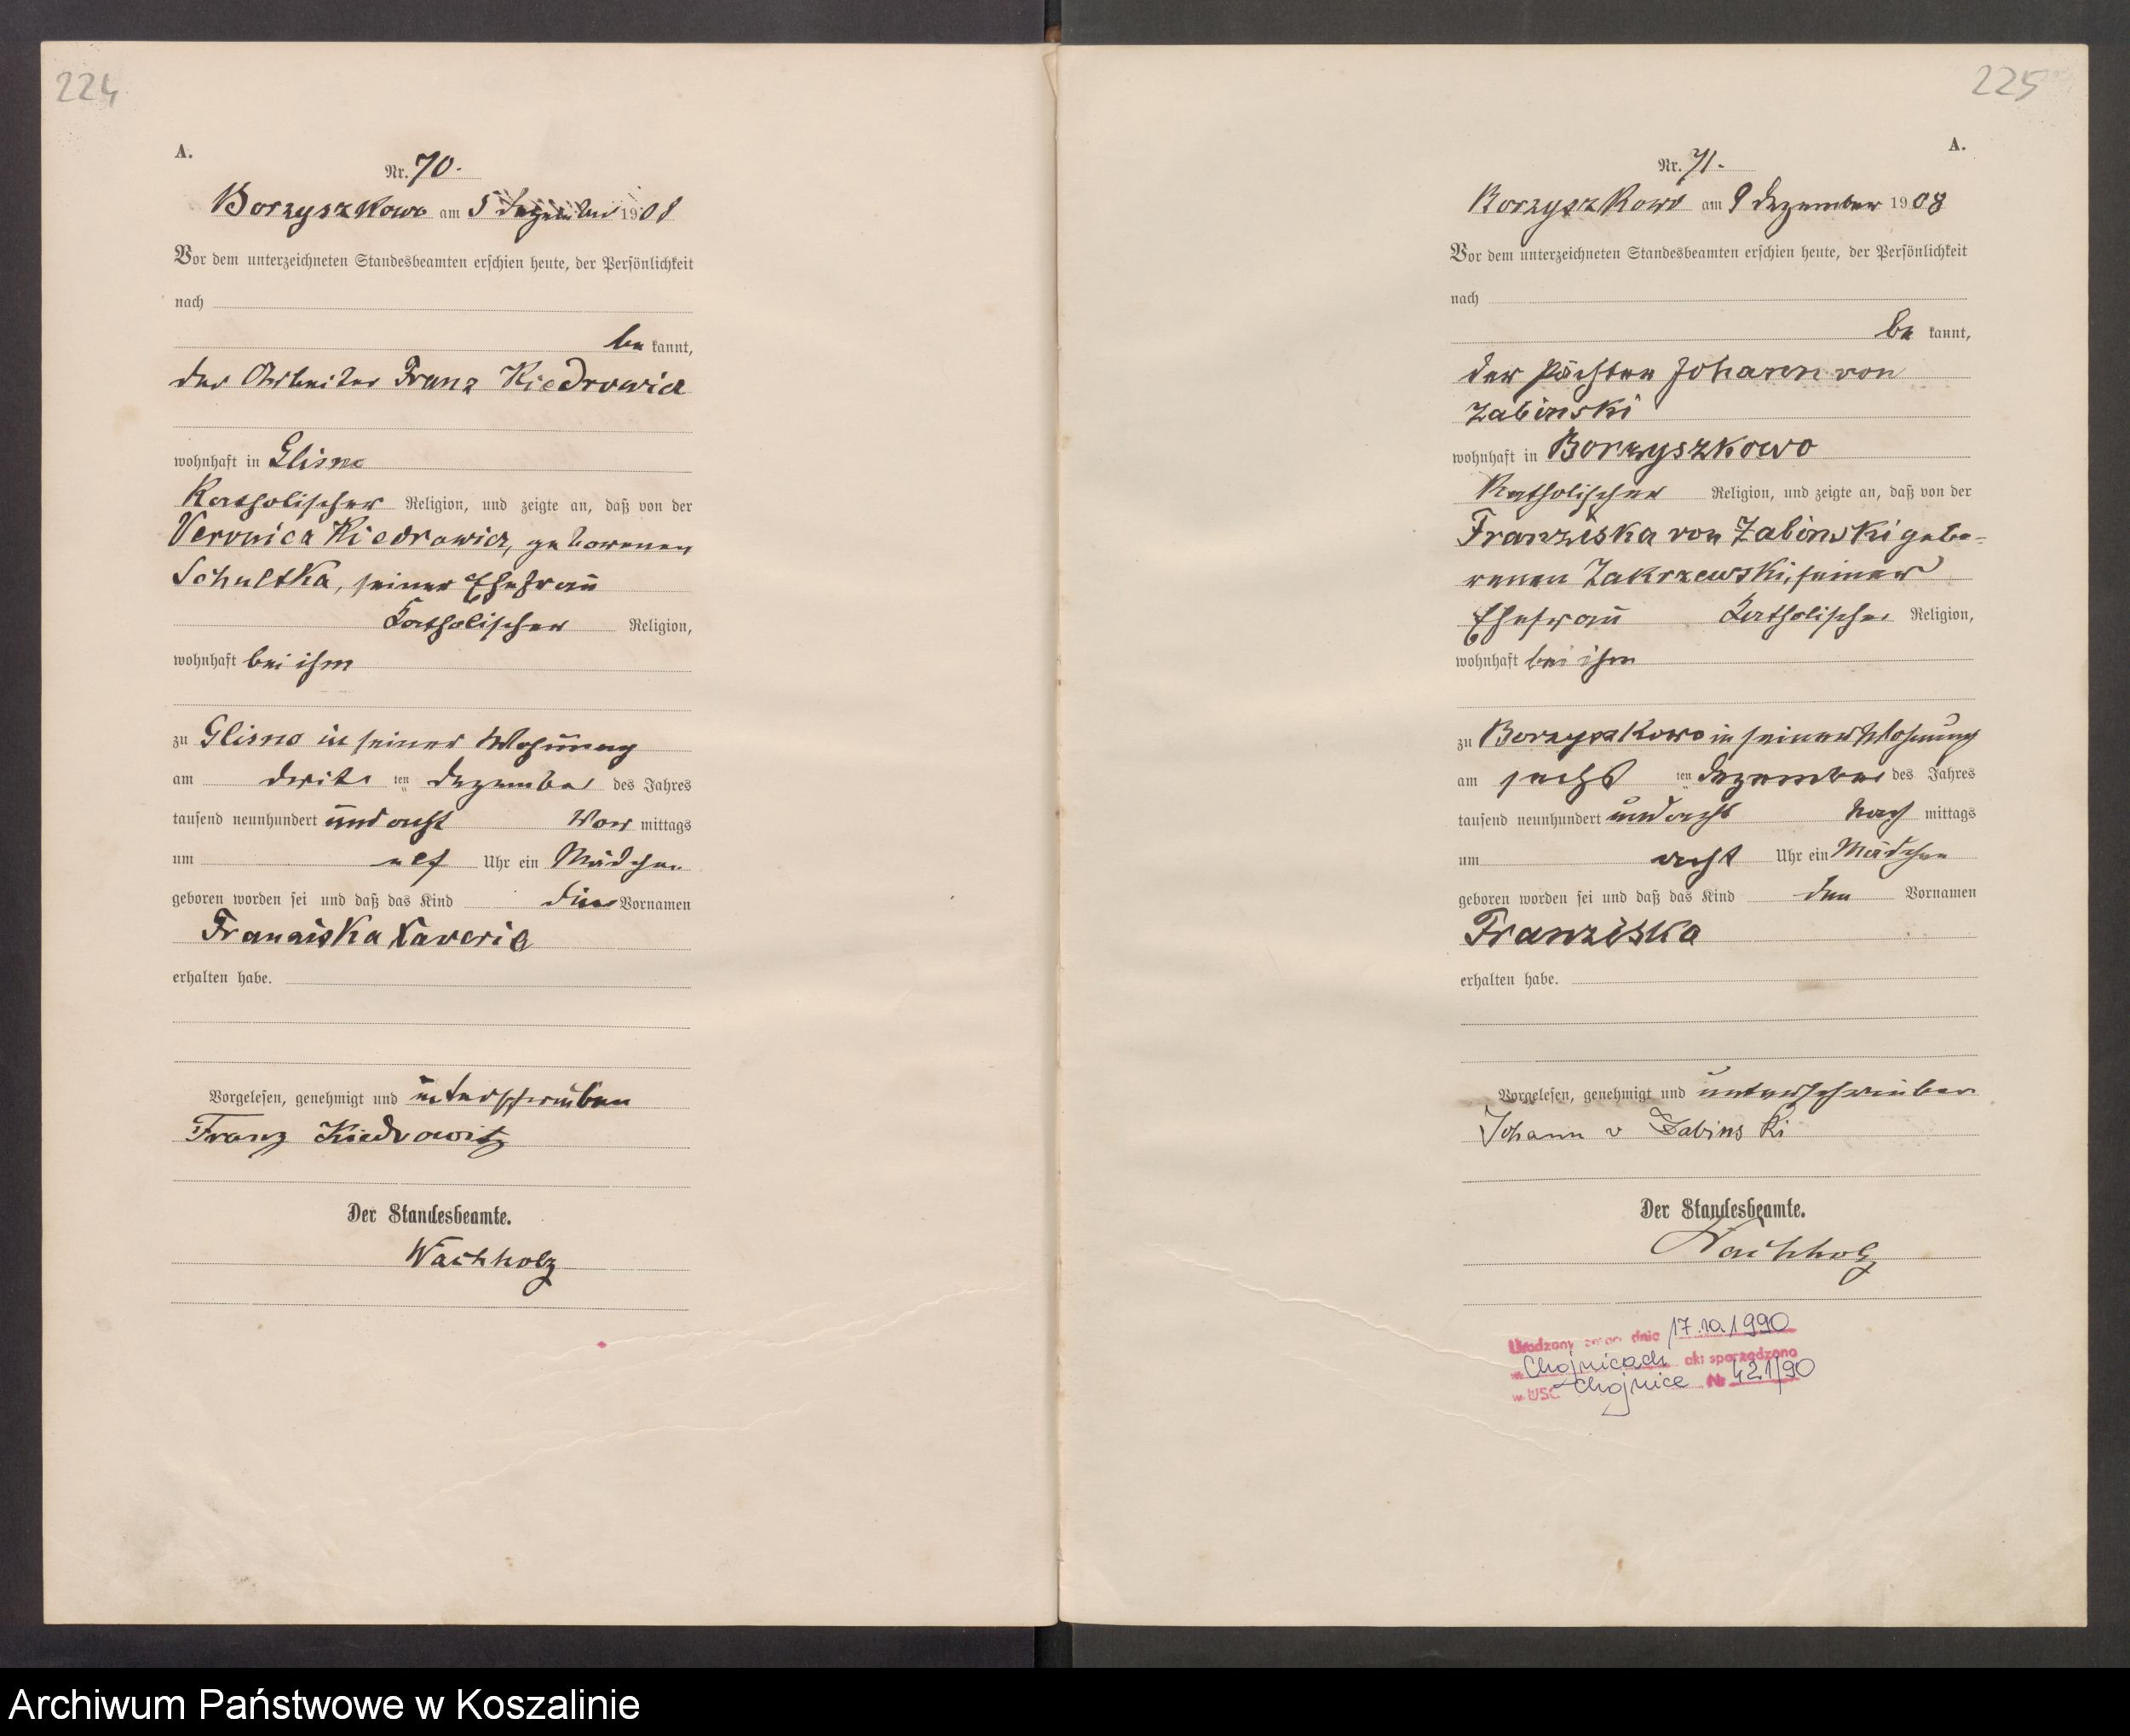 224
A.
Nr. 70.
Borzyszkowo am 5 Dezember 1908
Vor dem unterzeichneten Standesbeamten erschien heute, der Persönlichkeit
nach
be kannt,
der Arbeiter Franz Kiedrowicz
wohnhaft in Glisno
Katholischer Religion, und zeigte an, daß von der
Veronica Kiedrowicz, geborenen
Schultka, seiner Ehefrau
Katholischer Religion,
wohnhaft bei ihm
zu Glisno in seiner Wohnung
am dritten Dezember des Jahres
tausend neunhundert und acht Vor mittags
um elf Uhr ein Mädchen
geboren worden sei und daß das Kind die Vornamen
Franziska Xaveria
erhalten habe.
Vorgelesen, genehmigt und unterschrieben
Franz Kiedrowitz
Der Standesbeamte.
Wachholz
225
A.
Nr. 71.
Borzyszkowo am 9 Dezember 1908
Vor dem unterzeichneten Standesbeamten erschien heute, der Persönlichkeit
nach
be kannt,
der Pächter Johann von
Zabinski
wohnhaft in Borzyszkowo
Katholischer Religion, und zeigte an, daß von der
Franziska von Zabinski gebo=
renen Zakrzewski, seiner
Ehefrau Katholischer Religion,
wohnhaft bei ihm
zu Borzyszkowo in seiner Wohnung
am sechsten Dezember des Jahres
tausend neunhundert und acht Nach mittags
um acht Uhr ein Mädchen
geboren worden sei und daß das Kind den Vornamen
Franziska
erhalten habe.
Vorgelesen, genehmigt und unterschrieben
Johann v Zabinski
Der Standesbeamte.
Wachholz
dnia 17.10.1990
w Chojnicach akt sporządzono
w USC Chojnice Nr 421/90
Archiwum Państwowe w Koszalinie